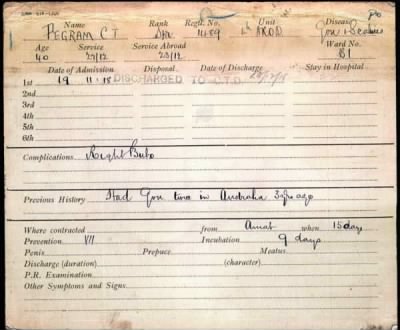 Name Rank Regtl. No. Unit Disease
PEGRAM C T Dvr 4489 AAOD Gon &
Age Service Service Abroad Ward No.
40 27/12 23/12 B1
Date of Admission Disposal Date of Discharge Stay in Hospital
1st 19 11.18 DISCHARGED TO C.T.D.
2nd
3rd
4th
5th
6th
Complications Right Bubo
Previous History Had Gon time in Australia ago
Where contracted from Amat when 15 days
Prevention VII Incubation 9 days
Penis Prepuce Meatus
Discharge (duration) (character)
P.R. Examination
Other Symptoms and Signs.